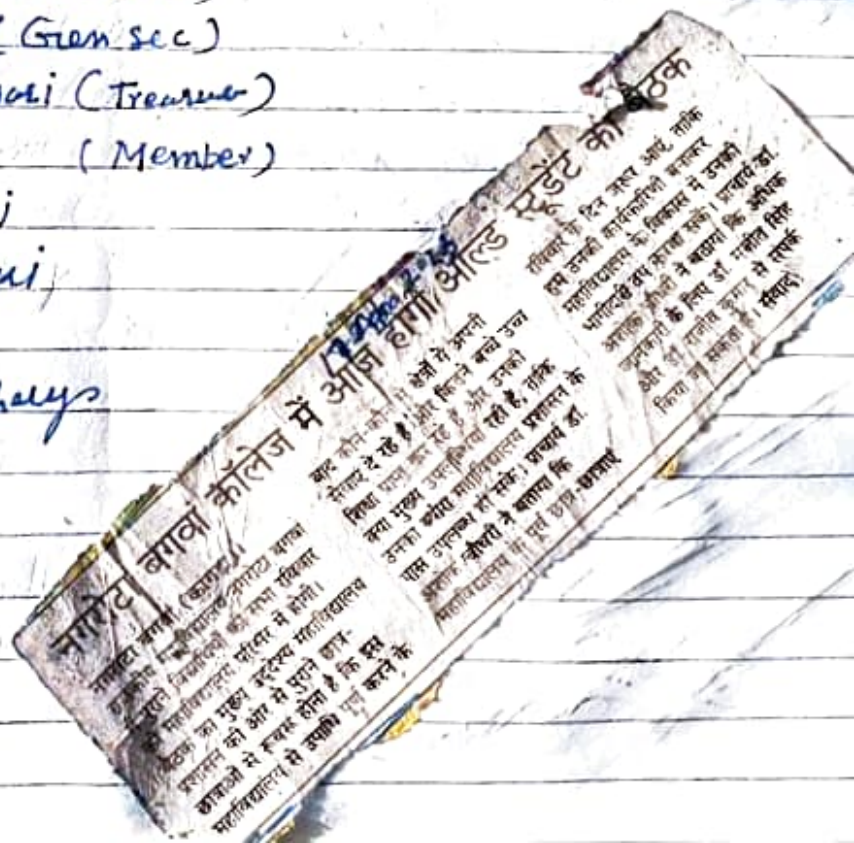 (Gen sec)
(Treasurer)
(Member)
नगरोटा बगवां कॉलेज में आज होगी ओल्ड स्टूडेंट की बैठक
नगरोटा बगवां (कांगड़ा)।
राजकीय महाविद्यालय नगरोटा बगवां
के पुराने विद्यार्थियों की सभा रविवार
को महाविद्यालय परिसर में होगी।
बैठक का मुख्य उद्देश्य महाविद्यालय
प्रशासन की ओर से पुराने छात्र-
छात्राओं से रूबरू होना है कि इस
महाविद्यालय से उपाधि पूर्ण करने के
बाद कौन कौन से क्षेत्रों में अपनी
सेवाएं दे रहे हैं। और कितने बच्चे उच्च
शिक्षा प्राप्त कर रहे हैं और उनकी
क्या मुख्य उपलब्धियां रही हैं, ताकि
उनका ब्योरा महाविद्यालय प्रशासन के
पास उपलब्ध हो सके। प्राचार्य डॉ.
चौधरी ने बताया कि
महाविद्यालय के पूर्व छात्र छात्राएं
रविवार के दिन जरूर आएं, ताकि
हम उनकी कार्यकारिणी बनाकर
महाविद्यालय के विकास में उनकी
भागीदारी तय करवा सकें। प्राचार्य डॉ.
चौधरी ने बताया कि अधिक
जानकारी के लिए डॉ. सिंह
और डॉ. कुमार से संपर्क
किया जा सकता है। संवाद